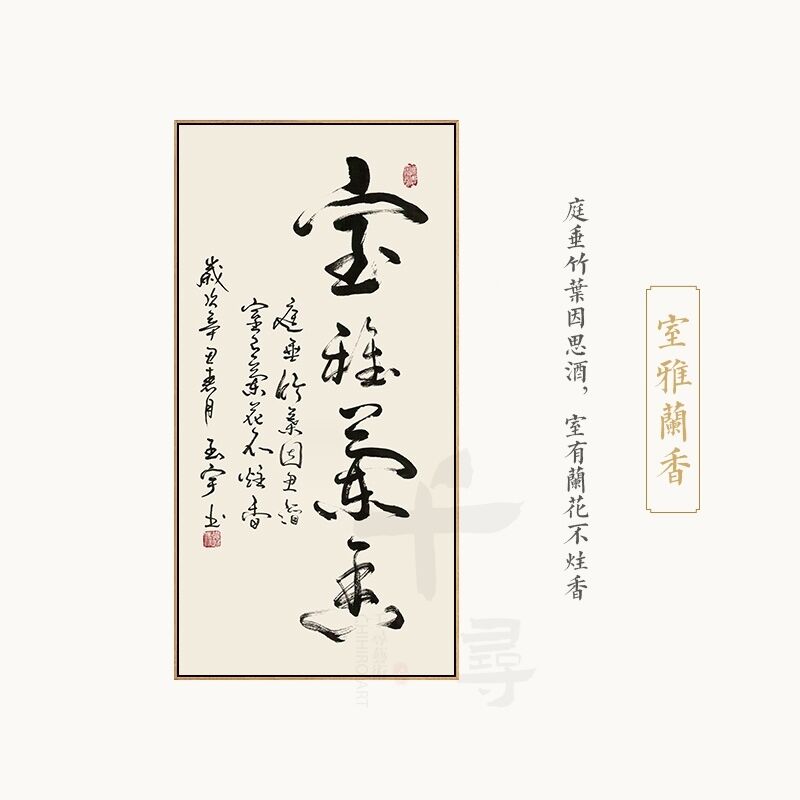 室雅蘭香
庭垂竹葉因思酒，室有蘭花不炷香
室雅蘭香
庭垂竹葉因思酒
室有蘭花不炷香
歲次辛丑春月 玉宇书
千尋
CHIHIROART